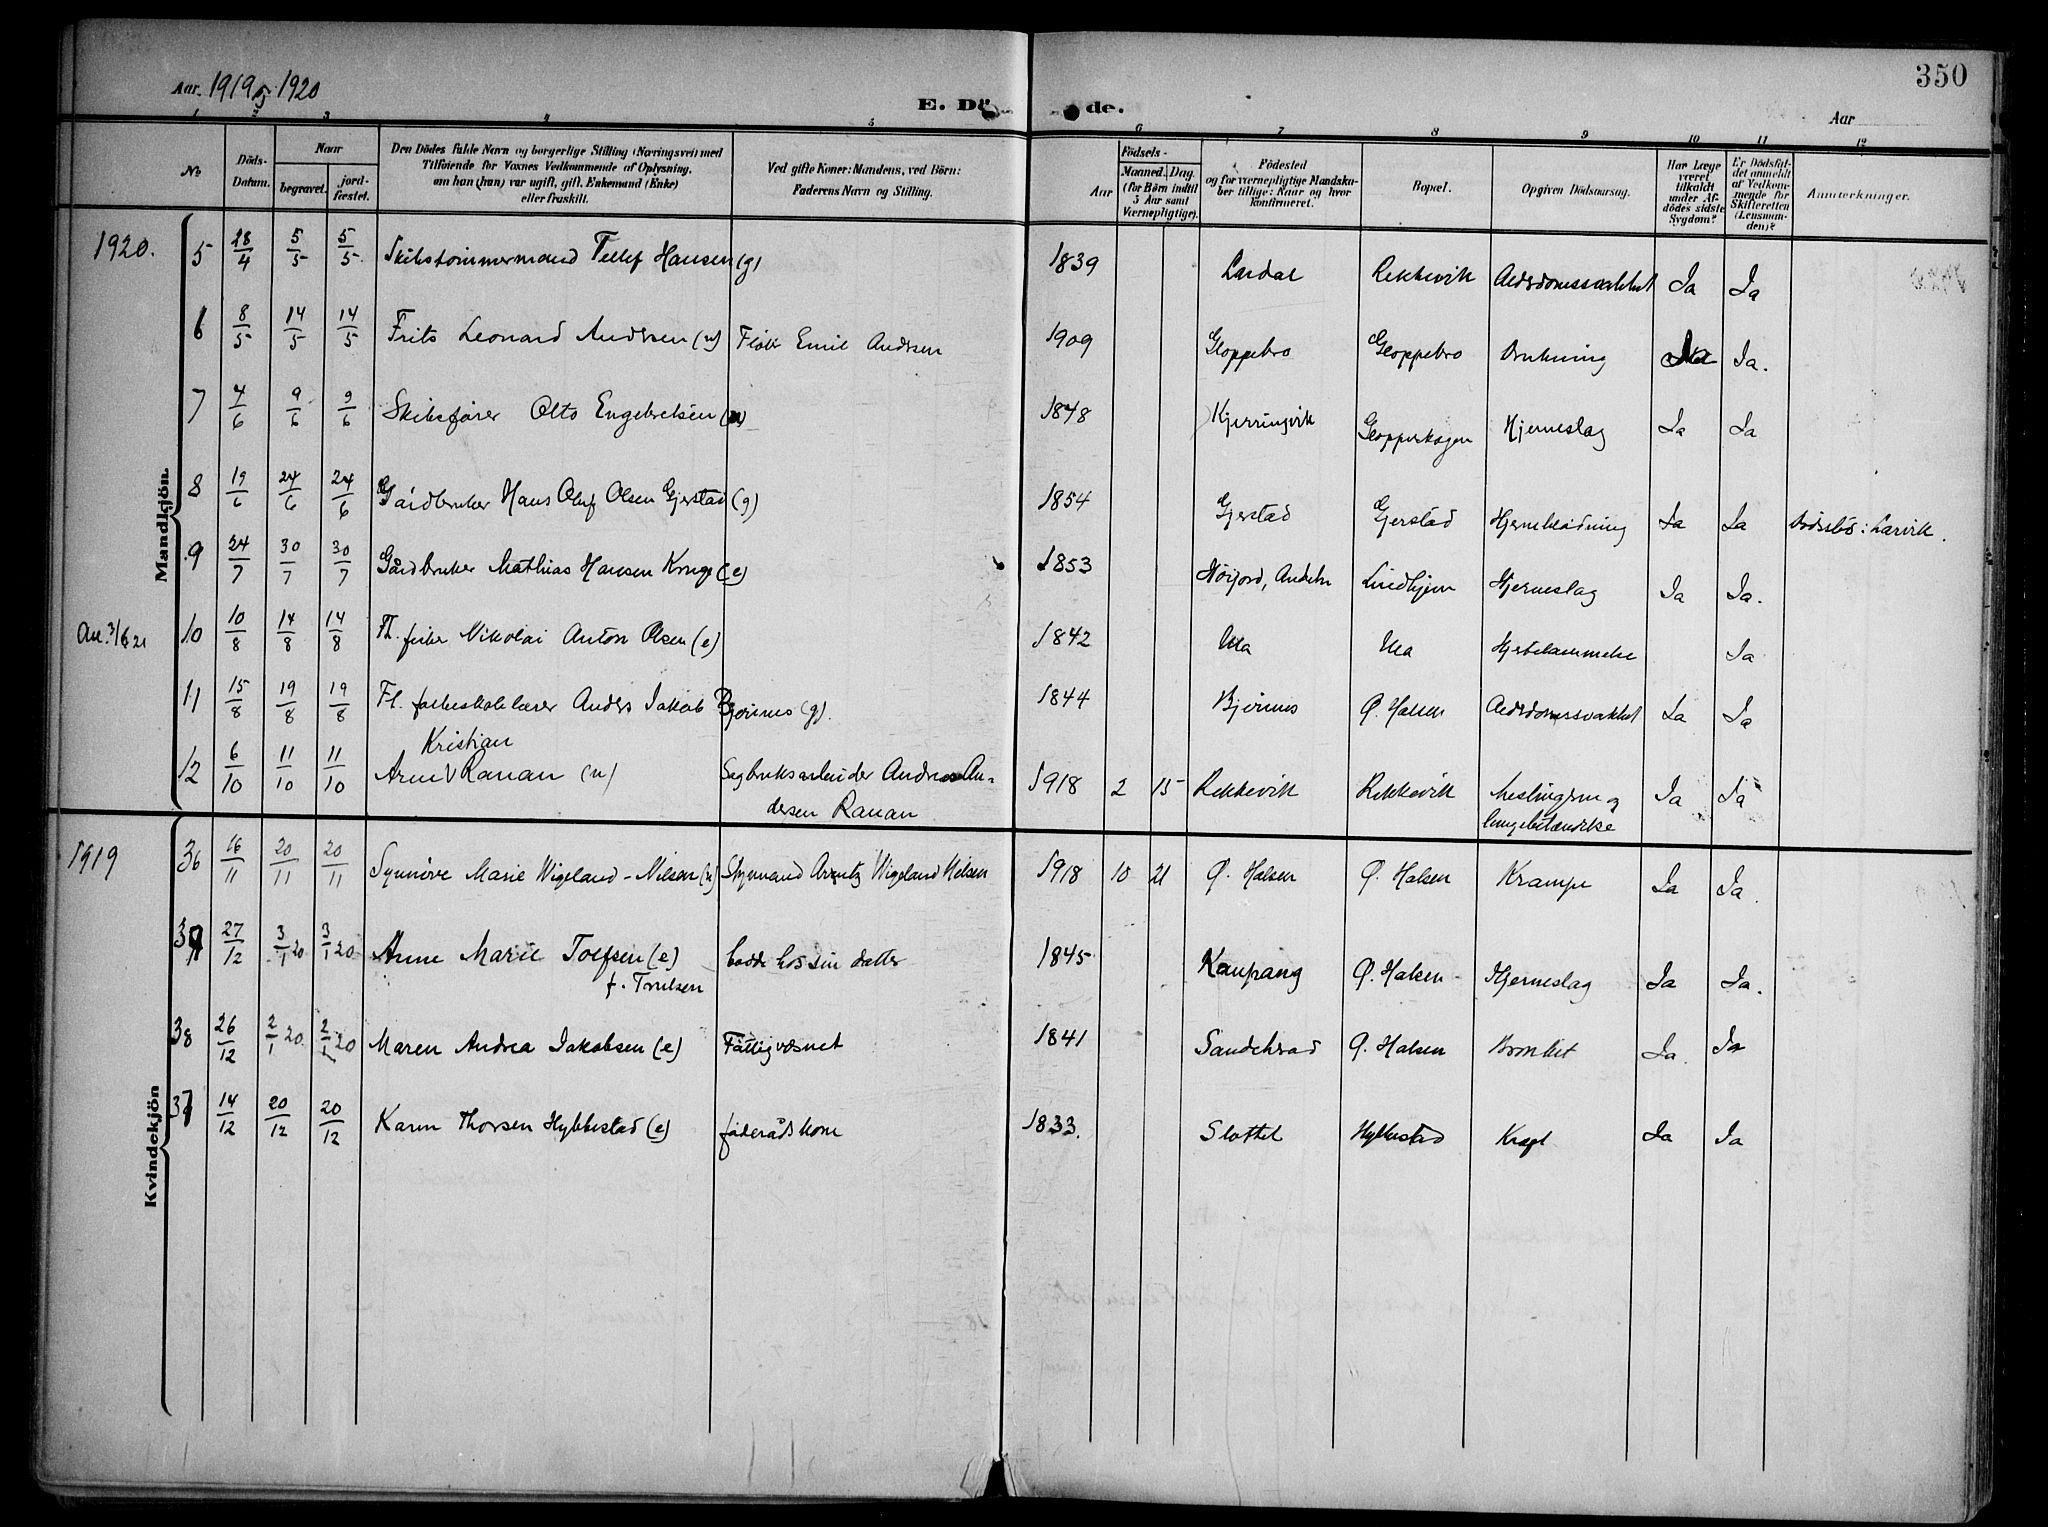 350
Aar. 1919 1920
E. Dö de.
Aar
1 2 3 4 5 6 7 8 9 10 11 12
No
Döds-Datum.
Naar
begravet.
jord-fæstet.
Den Dödes fulde Navn og borgerlige Stilling (Næringsvei) med
Tilföiende for Voxnes Vedkommende af Oplysning,
om han (hun) var ugift, gift, Enkemand (Enke)
eller fraskilt.
Ved gifte Koner: Mandens, ved Börn:
Faderens Navn og Stilling.
Födsels-
Aar
Maaned. Dag.
(for Börn indtil
5 Aar samt
Værnepligtige).
Födested
og for værnepligtige Mandska-
ber tillige: Naar og hvor
konfirmeret.
Bopæl.
Opgiven Dödsaarsag.
Har Læge
været
tilkaldt
under Af-
dödes sidste
Sygdom?
Er Dödsfal-
det anmeldt
af Vedkom-
mende for
Skifteretten
(Lensman-
den)?
Anmærkninger.
Mandkjön.
1920. 5 28/4 5/5 5/5 Skibstømmermand Tellef Hansen (g) 1839 Lindal Rekkevik Alderdomssvakhet Ja Ja
6 8/5 14/5 14/5 Frits Leonard Andersen (u) Emil Andersen 1909 Gloppebro Gloppebro Drukning Ja.
7 4/6 9/6 9/6 Skibsfører Otto Engebretsen 1848 Kjerringvik Gloppeskogen Hjerneslag Ja Ja
8 19/6 24/6 24/6 Gårdbruker Hans Oluf Olsen Gjerstad (g) 1854 Gjerstad Gjerstad Hjerneblødning Ja Ja Dødssted: Larvik.
9 24/7 30/7 30/7 Gårdbruker Mathias Hansen (e) 1853 Høijord, Andebu Lindhjem Hjerneslag Ja Ja.
An. 3/6 21 10 10/8 14/8 14/8 Fh. fisker Nikolai Anton Olsen (e) 1842 Ula Ula Hjertelammelse Ja
11 15/8 19/8 19/8 Fh. folkeskolelærer Anders Jakob Bjønnes (g). 1844 Bjønnes Ø. Halsen Alderdomssvakhet Ja Ja
Kristian
12 6/10 11/10 11/10 Arne V Ranan (u) Sagbruksarbeider Andreas An-
dersen Ranan 1918 2 15 Rekkevik Rekkevik Meslinger og
lungebetændelse Ja Ja
Kvindekjön
1919 36 16/11 20/11 20/11 Synnøve Marie Wigeland-Nilsen (u) Styrmand Arentz Wigeland Nilsen 1918 10 21 Ø. Halsen Ø. Halsen Krampe Ja Ja.
37 27/12 3/1 20 3/1 20 Anne Marie Tollefsen (e) bodde hos sin datter 1845 Kaupang Ø. Halsen Hjerneslag Ja Ja.
f. Trulsen
38 26/12 2/1 20 2/1 20 Maren Andrea Jakobsen (e) Fattigvæsnet 1841 Sandekrad Ø. Halsen Bronkit Ja. Ja
37 14/12 20/12 20/12 Karen Thorsen Hybbestad (e) føderådskone 1833. Slottet Hybbestad Kræft Ja Ja